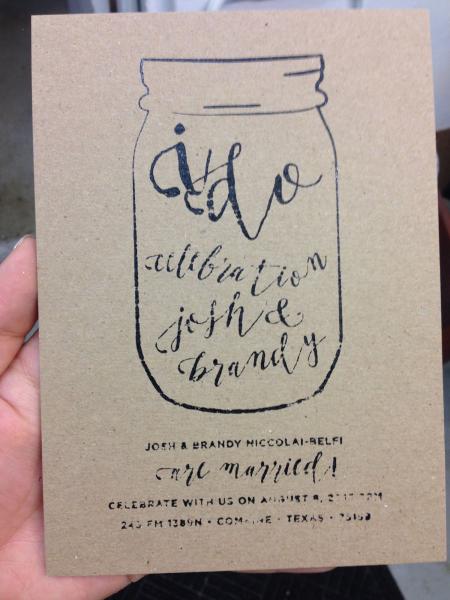 i do
celebration
josh &
brandy
JOSH & BRANDY NICCOLAI-BELFI
are married!
CELEBRATE WITH US ON AUGUST 8,
FM 1389N • COMBINE • TEXAS •